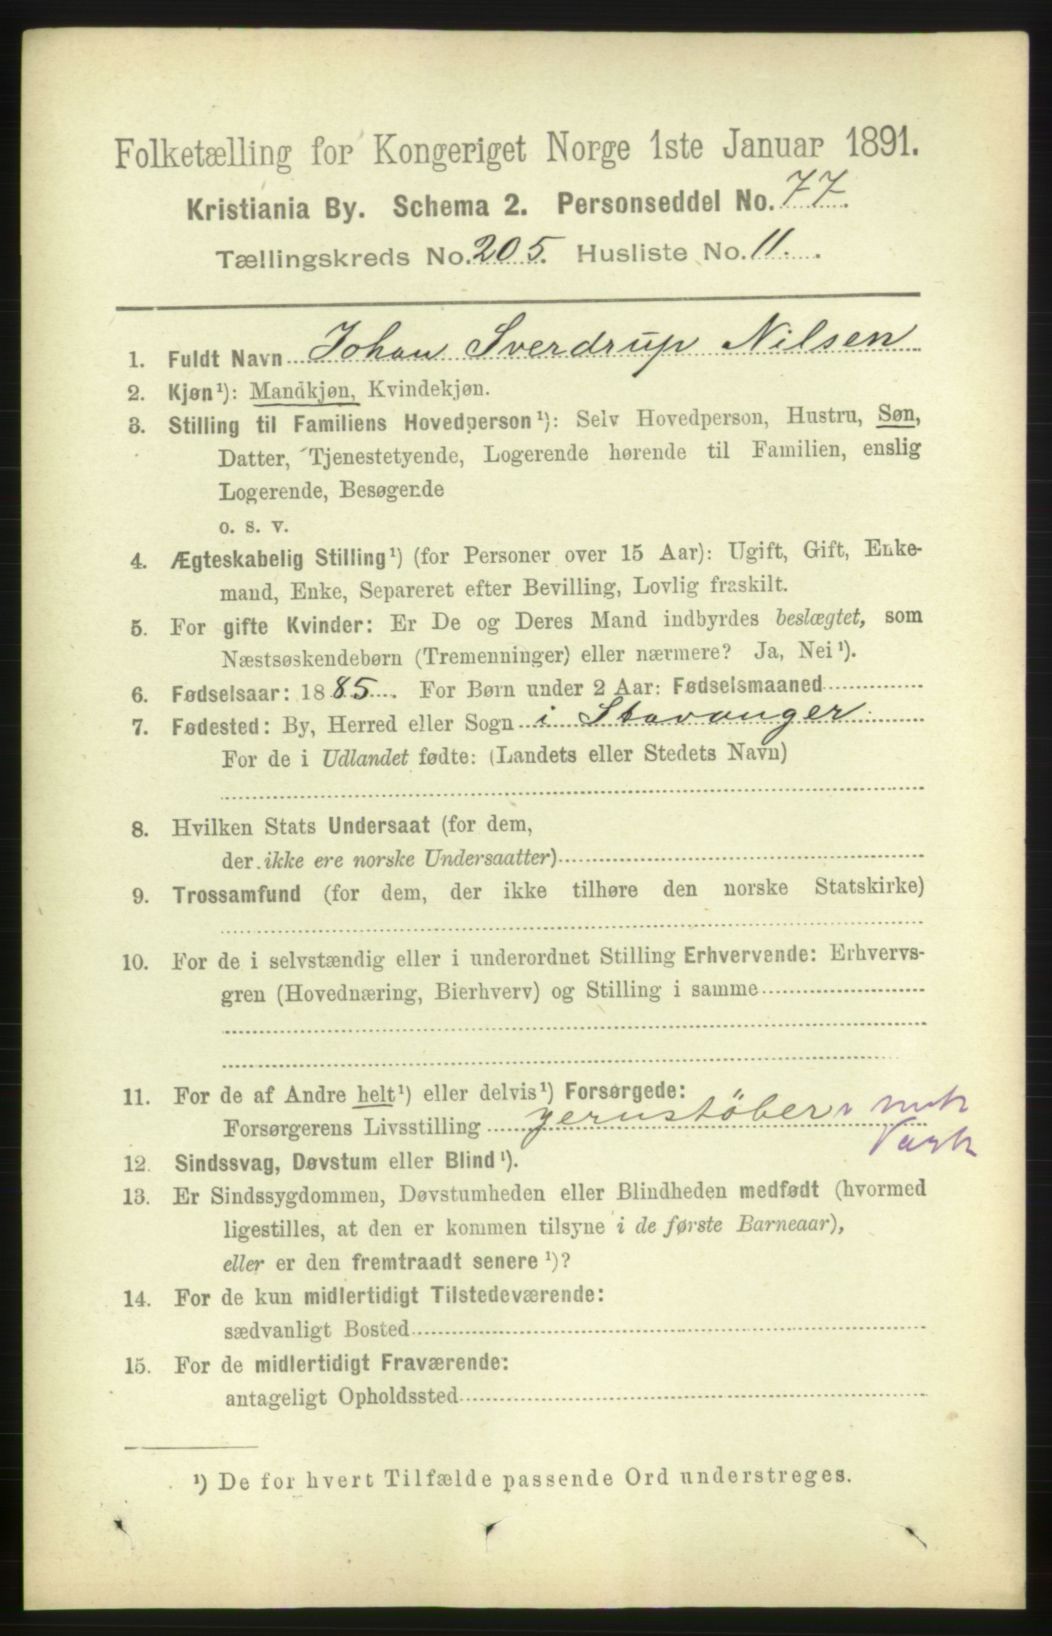 Folketælling for Kongeriget Norge 1ste Januar 1891.
Kristiania By. Schema 2. Personseddel No. 77.
Tællingskreds No. 205. Husliste No. 11.
1. Fuldt Navn Johan Sverdrup Nilsen
2. Kjøn¹): Mandkjøn, Kvindekjøn.
3. Stilling til Familiens Hovedperson¹): Selv Hovedperson, Hustru, Søn,
Datter, Tjenestetyende, Logerende hørende til Familien, enslig
Logerende, Besøgende
o. s. v.
4. Ægteskabelig Stilling¹) (for Personer over 15 Aar): Ugift, Gift, Enke-
mand, Enke, Separeret efter Bevilling, Lovlig fraskilt.
5. For gifte Kvinder: Er De og Deres Mand indbyrdes beslægtet, som
Næstsøskendebørn (Tremenninger) eller nærmere? Ja, Nei¹).
6. Fødselsaar: 1885. For Børn under 2 Aar: Fødselsmaaned
7. Fødested: By, Herred eller Sogn i Stavanger
For de i Udlandet fødte: (Landets eller Stedets Navn)
8. Hvilken Stats Undersaat (for dem,
der ikke ere norske Undersaatter)
9. Trossamfund (for dem, der ikke tilhøre den norske Statskirke)
10. For de i selvstændig eller i underordnet Stilling Erhvervende: Erhvervs-
gren (Hovednæring, Bierhverv) og Stilling i samme
11. For de af Andre helt¹) eller delvis¹) Forsørgede:
Forsørgerens Livsstilling jernstöber i mek
Værk
12. Sindssvag, Døvstum eller Blind¹).
13. Er Sindssygdommen, Døvstumheden eller Blindheden medfødt (hvormed
ligestilles, at den er kommen tilsyne i de første Barneaar),
eller er den fremtraadt senere¹)?
14. For de kun midlertidigt Tilstedeværende:
sædvanligt Bosted
15. For de midlertidigt Fraværende:
antageligt Opholdssted
¹) De for hvert Tilfælde passende Ord understreges.